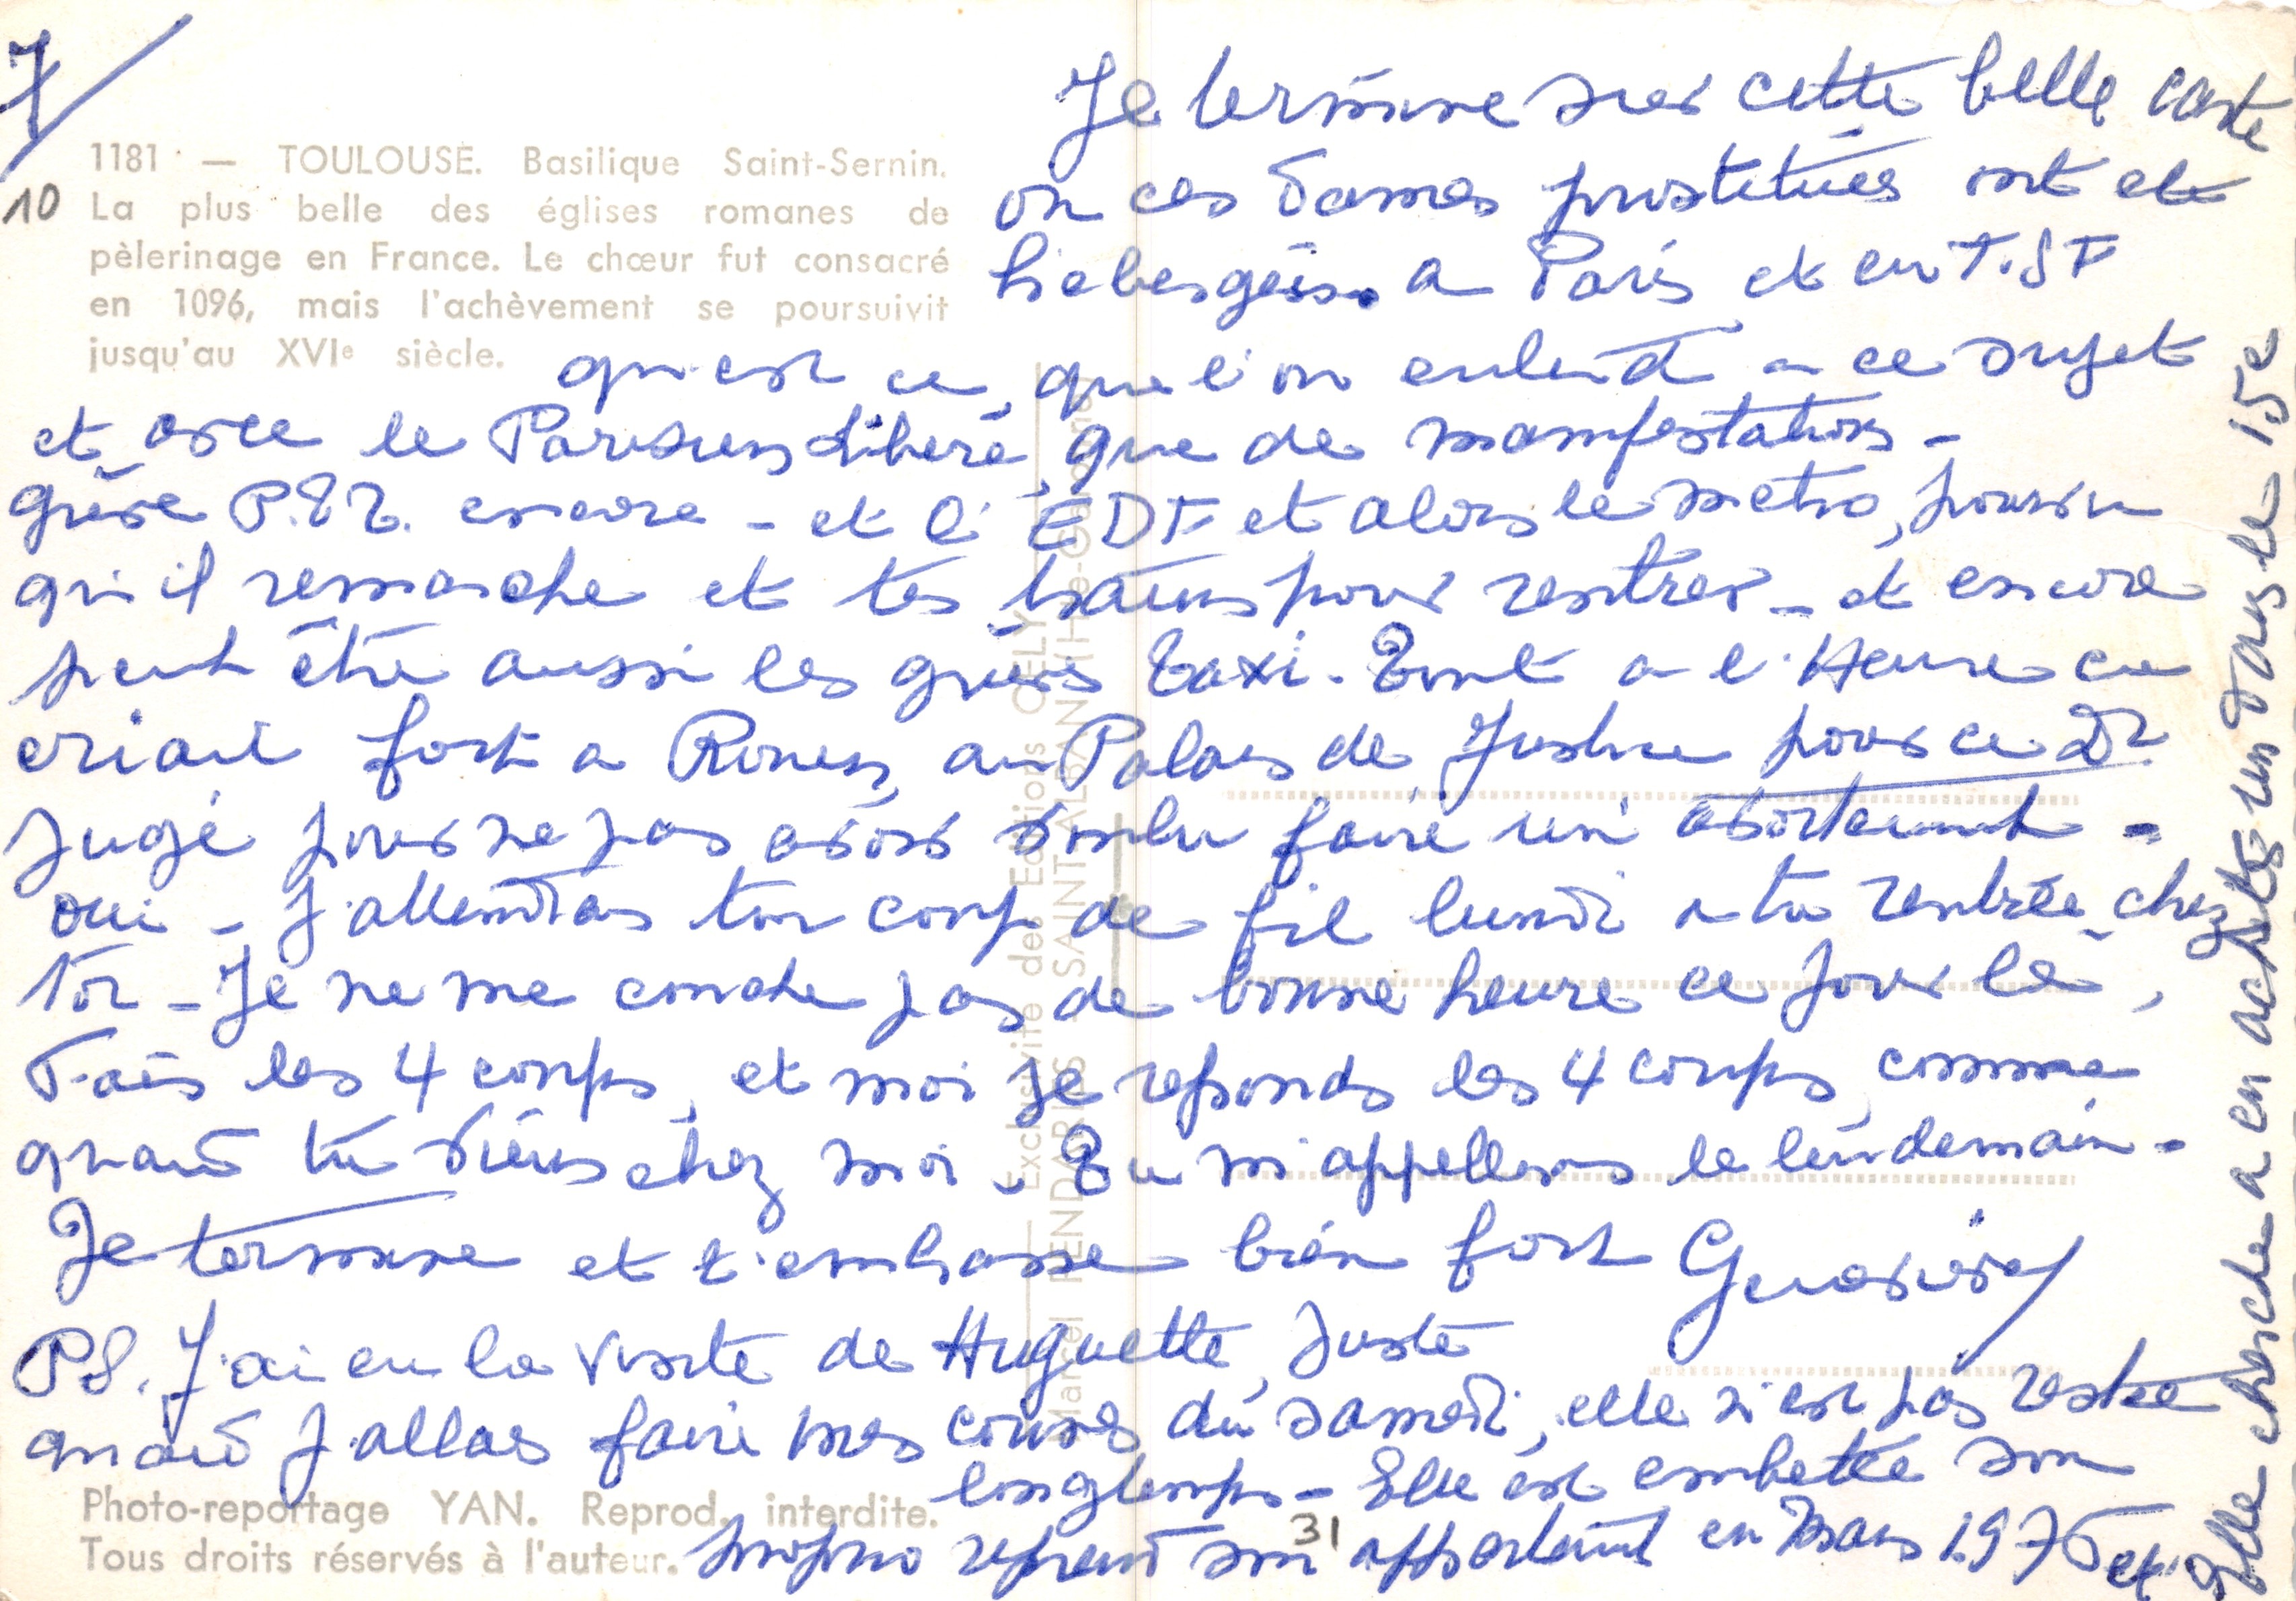 7/
10
1181 — TOULOUSE. Basilique Saint-Sernin.
La plus belle des églises romanes de
pèlerinage en France. Le chœur fut consacré
en 1096, mais l'achèvement se poursuivit
jusqu'au XVIe siècle.
Je termine sur cette belle carte
on ces dames prostituées ont ete
hebergées a Paris et en T.S F
qu'est ce que l'on entend a ce sujet
et avec le Parisien Libéré, que de manifestations -
grève P.E T. encore - et l'EDF et alors le metro, pourvu
qu'il remarche et tes trains pour rentrer - et encore
peut être aussi les grèves Taxi. Tout a l'Heure ca
criait fort a Rouen, au Palais de Justice pour ce Dr
Jugé pour ne pas avoir voulu faire un avortement -
oui - J'attendras ton coup de fil lundi a ta rentrée chez
toi - Je ne me couche pas de bonne heure ce jour là,
Fais les 4 coups, et moi je reponds les 4 coups, comme
quand tu viens chez moi - Tu m'appelleras le lendemain -
Je termine et t'embrasse bien fort
PS. J'ai eu la visite de Huguette, Juste
quand J'allais faire mes courses du samedi, elle n'est pas restée
longtemps - Elle est embetée son
proprio reprend son appartement en Mars 1976 et
Elle cherche a en acheter un dans le 15e
Photo-reportage YAN. Reprod. interdite.
Tous droits réservés à l'auteur.
31
Exclusivité des Editions OELY
Marcel PENDARIES SAINT-ALBAN (Hte-Garonne)